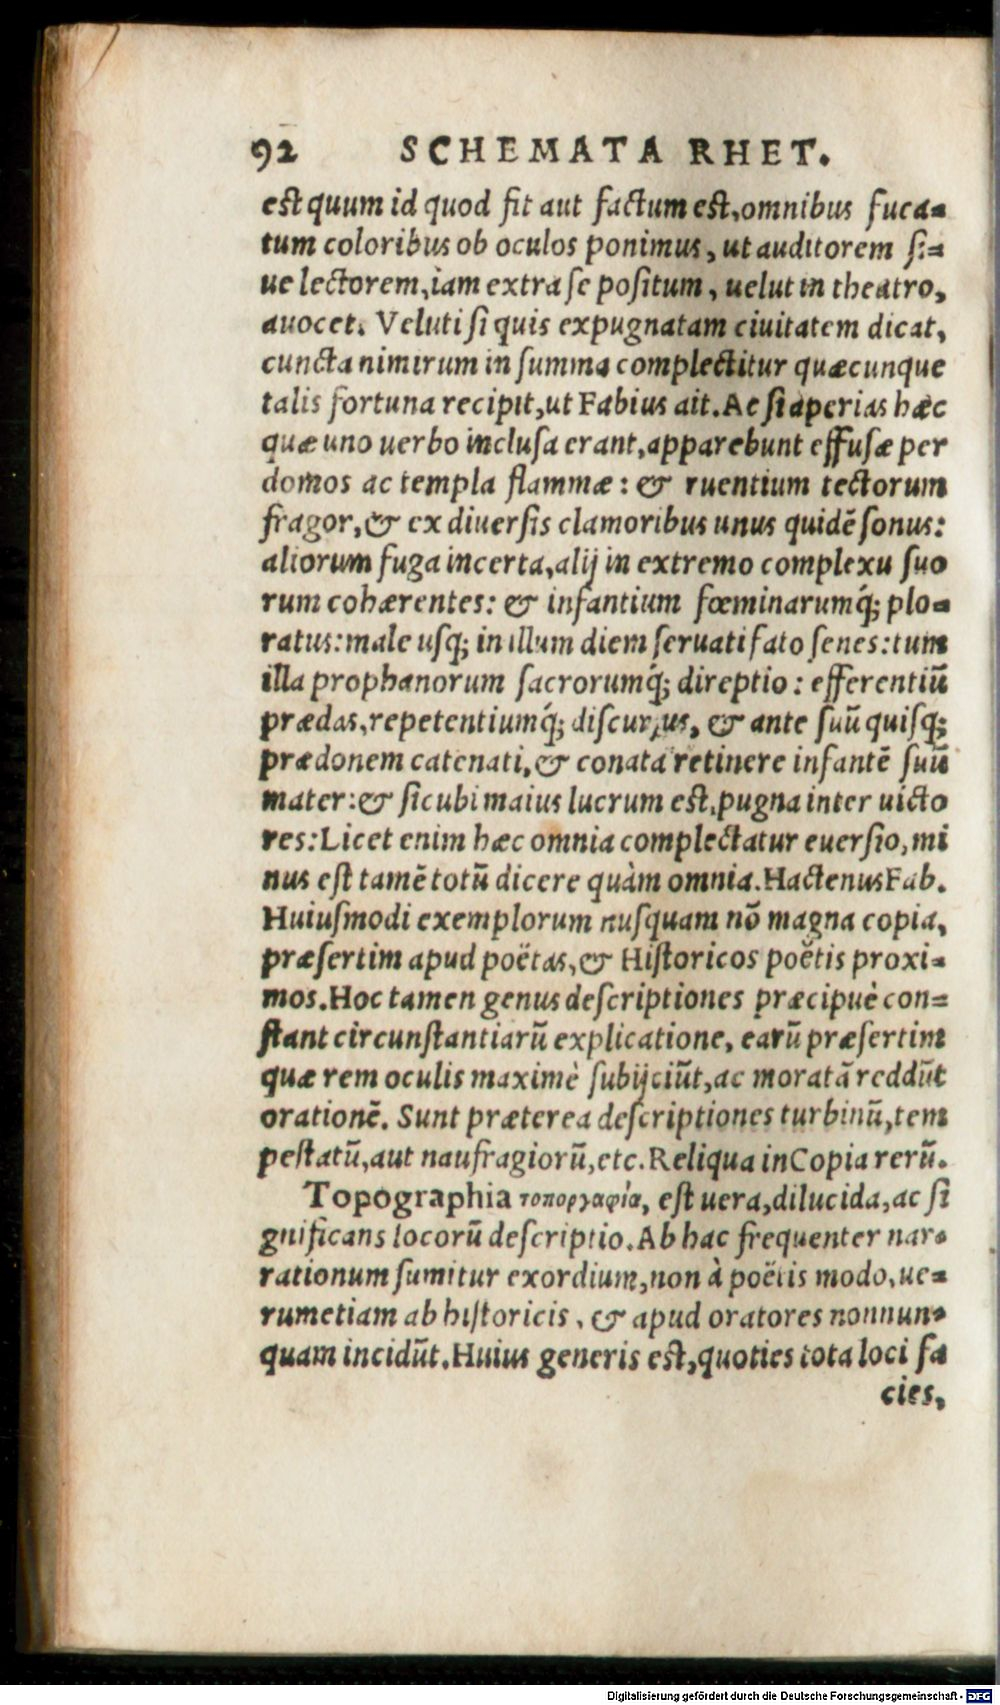 92 SCHEMATA RHET.
est quum id quod fit aut factum est, omnibus fuca-
tum coloribus ob oculos ponimus, ut auditorem si-
ue lectorem, iam extra se positum, uelut in theatro,
auocet. Veluti si quis expugnatam ciuitatem dicat,
cuncta nimirum in summa complectitur quæcunque
talis fortuna recipit, ut Fabius ait. Ac si aperias hæc
quæ uno uerbo inclusa erant, apparebunt effusæ per
domos ac templa flammæ: & ruentium tectorum
fragor, & ex diuersis clamoribus unus quidē sonus:
aliorum fuga incerta, alij in extremo complexu suo
rum cohærentes: & infantium fœminarumq́; plo-
ratus: male usq; in illum diem seruati fato senes: tum
illa prophanorum sacrorumq́; direptio: efferentiū
prædas, repetentiumq́; discursus, & ante suū quisq;
prædonem catenati, & conata retinere infantē suū
mater: & sicubi maius lucrum est, pugna inter uicto
res: Licet enim hæc omnia complectatur euersio, mi
nus est tamē totū dicere quàm omnia. Hactenus Fab.
Huiusmodi exemplorum nusquam nō magna copia,
præsertim apud poëtas, & Historicos poëtis proxi-
mos. Hoc tamen genus descriptiones præcipuè con-
stant circunstantiarū explicatione, earū præsertim
quæ rem oculis maximè subijciūt, ac moratā reddūt
orationē. Sunt præterea descriptiones turbinū, tem
pestatū, aut naufragiorū, etc. Reliqua in Copia rerū.
Topographia τοπογραφία, est uera, dilucida, ac si
gnificans locorū descriptio. Ab hac frequenter nar-
rationum sumitur exordium, non à poëtis modo, ue-
rumetiam ab historicis, & apud oratores nonnun-
quam incidūt. Huius generis est, quoties tota loci fa
cies,
Digitalisierung gefördert durch die Deutsche Forschungsgemeinschaft - DFG